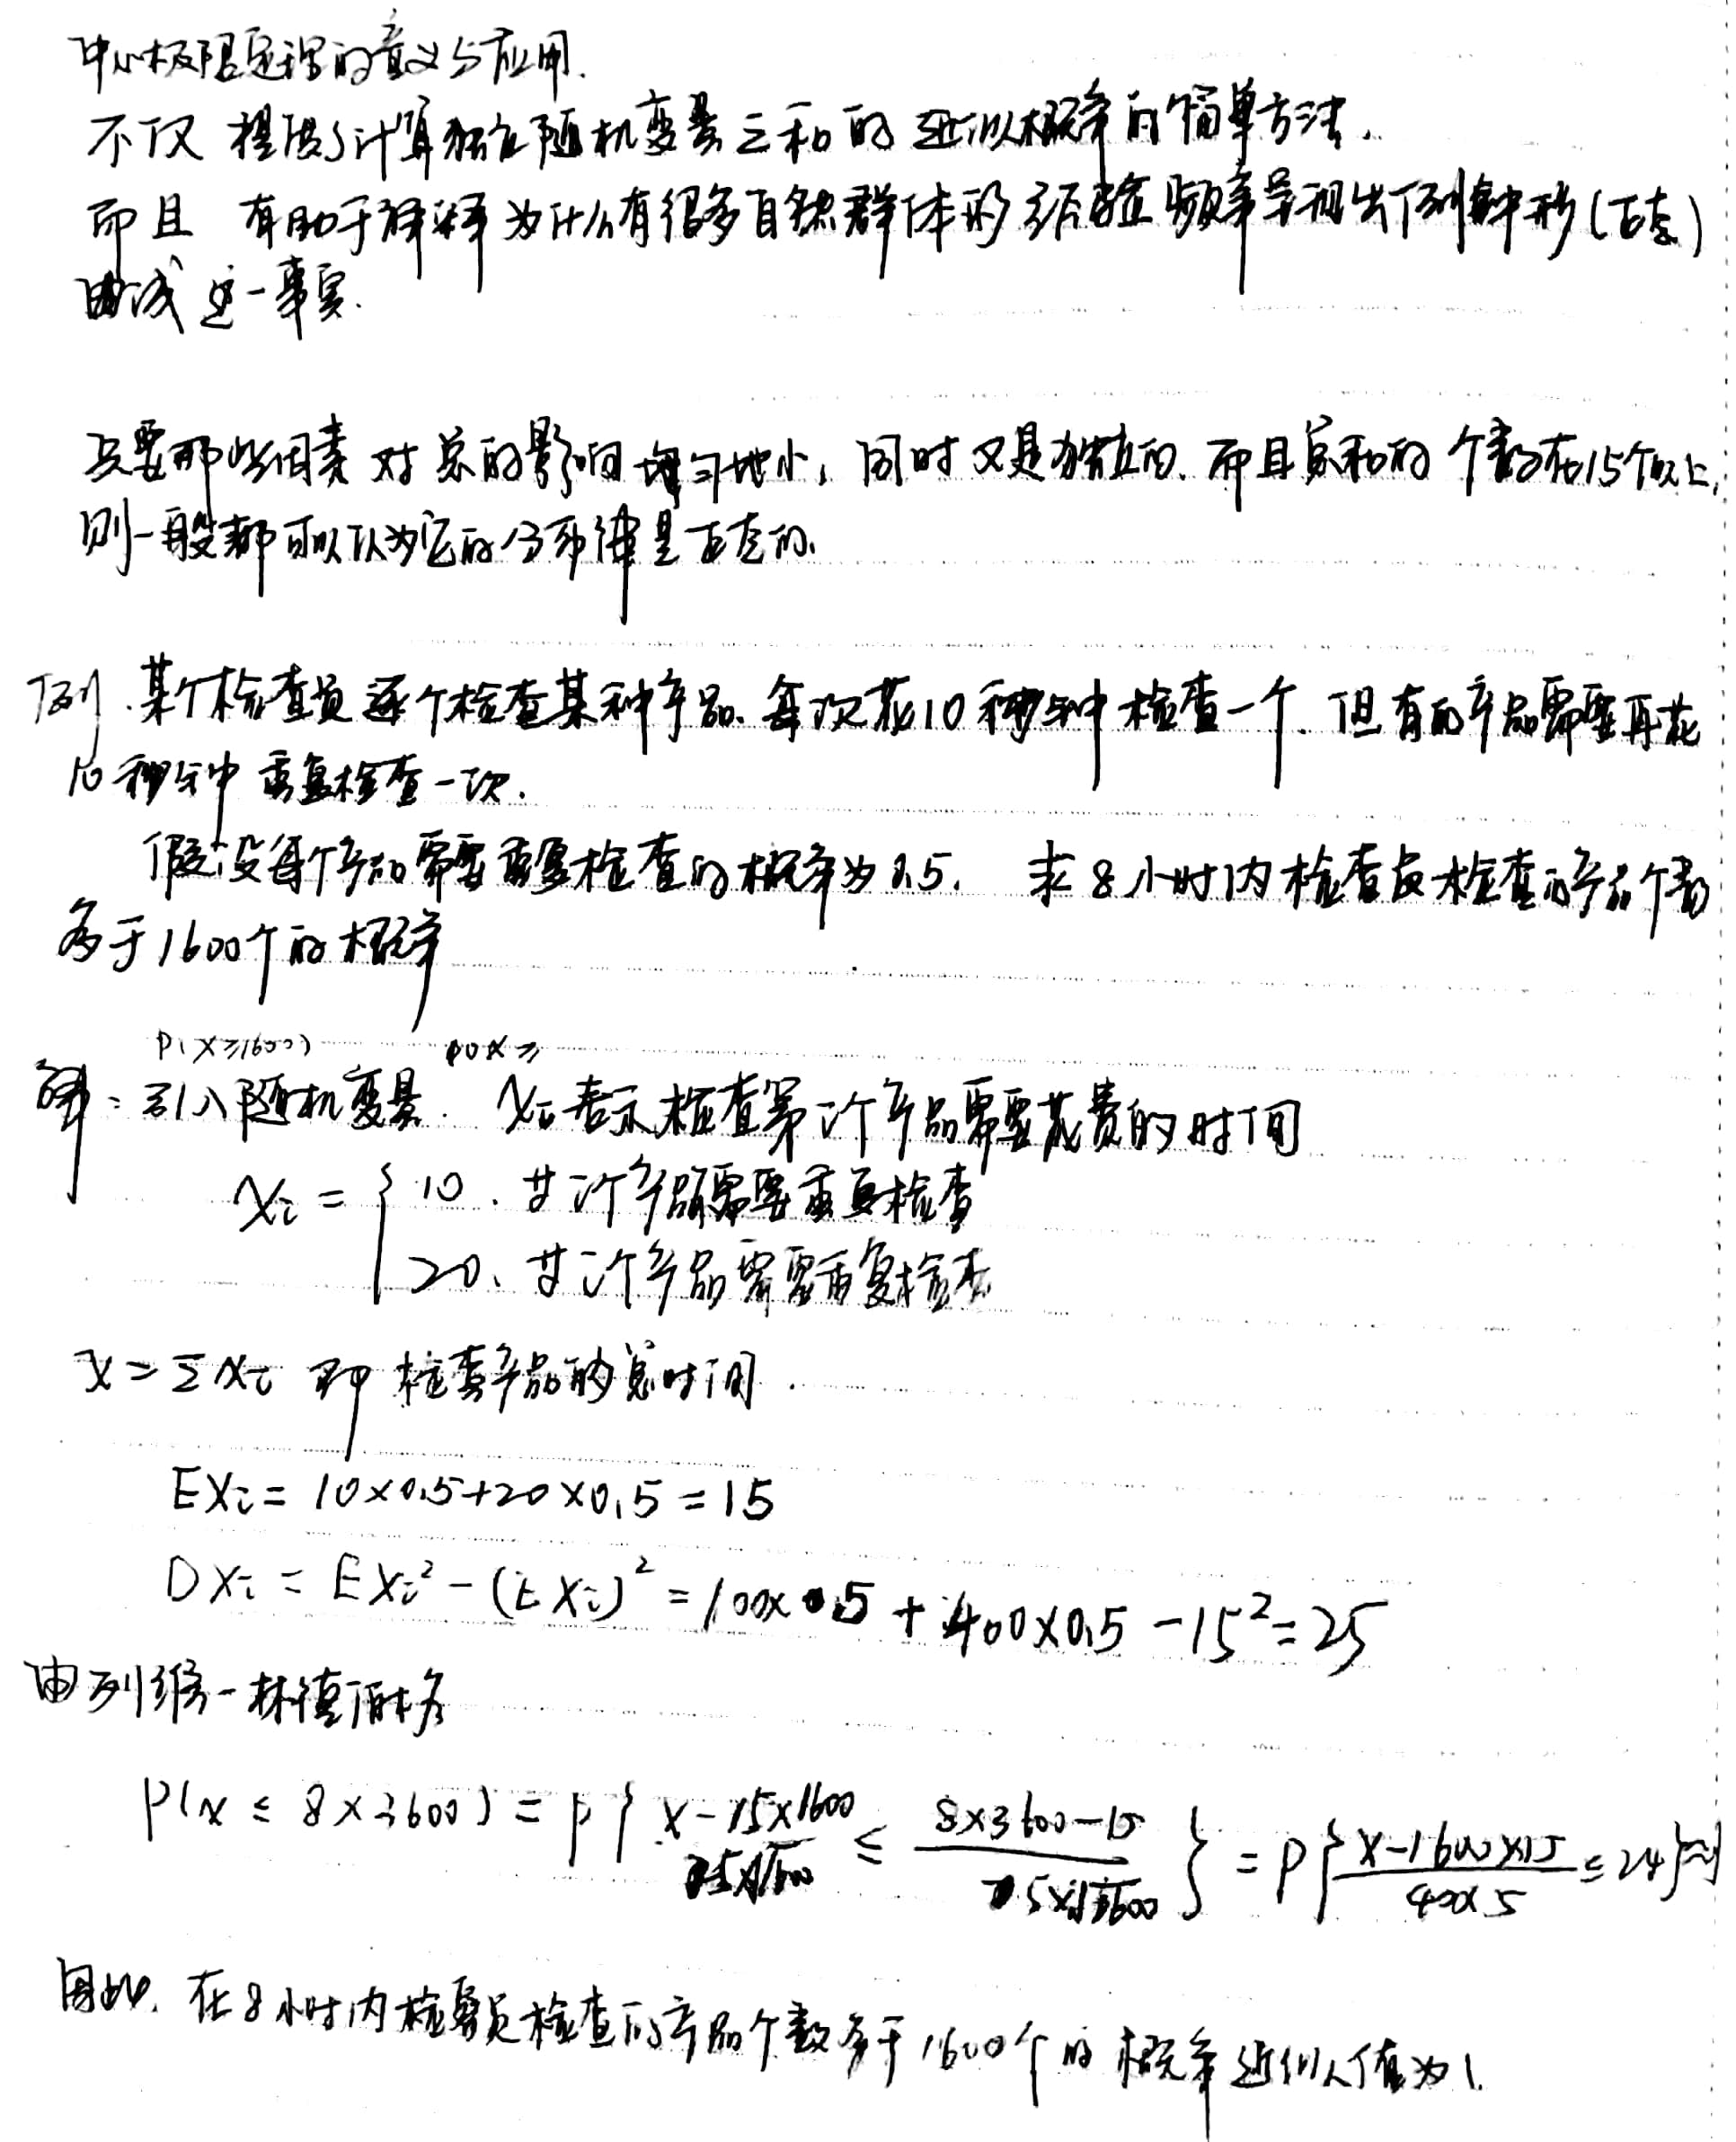 中心极限定理的意义与应用.
不仅 提供了计算独立随机变量之和的 近似概率的简单方法.
而且 有助于解释为什么有很多自然群体的经验频率呈现出 钟形(正态)
曲线 这一事实.
只要那些因素 对总的影响 均匀地小, 同时又是独立的. 而且总和的 个数在15个以上,
则一般都可以认为它的分布律是正态的.
例. 某个检查员逐个检查某种产品. 每次花10秒钟检查一个. 但有的产品需要再花
10秒钟 重复检查一次.
假设每个产品需要重复检查的概率为0.5. 求8小时内检查员检查的产品个数
多于1600个的概率
P(X≥1600) 10X≥
解: 引入随机变量. Xi表示检查第i个产品需要花费的时间
Xi = { 10. 第i个产品需要重复检查
20. 第i个产品需要重复检查
X = ΣXi 即 检查产品的总时间.
EXi = 10×0.5+20×0.5 = 15
DXi = EXi² - (EXi)² = 100×0.5 + 400×0.5 - 15² = 25
由列维-林德伯格
P(X ≤ 8×3600) = P{ X-15×1600 / 5×√1600 ≤ 8×3600-15 / 5×√1600 } = P{ X-1600×15 / 40×5 ≤ 24 } ≈ 1
因此. 在8小时内检查员检查的产品个数多于1600个的概率近似值为1.